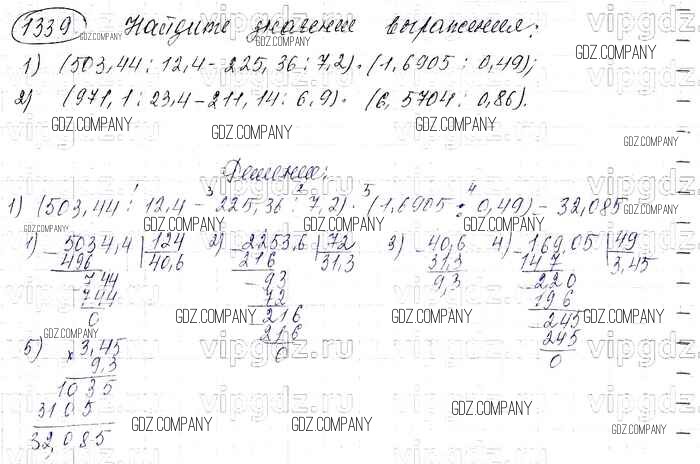 1339 Найдите значение выражения:
1) (503,44 : 12,4 - 225,36 : 7,2) · (1,6905 : 0,49);
2) (971,1 : 23,4 - 211,14 : 6,9) · (6,5704 : 0,86).
Решение:
1) (503,44 : 12,4 - 225,36 : 7,2) · (1,6905 : 0,49) = 32,085
1) 5034,4 | 124 2) 2253,6 | 72 3) 40,6 4) 169,05 | 49
496 40,6 216 31,3 31,3 147 3,45
744 93 9,3 220
744 72 196
0 216 245
216 245
0 0
5) 3,45
× 9,3
1035
3105
32,085
GDZ.COMPANY
vipgdz.ru